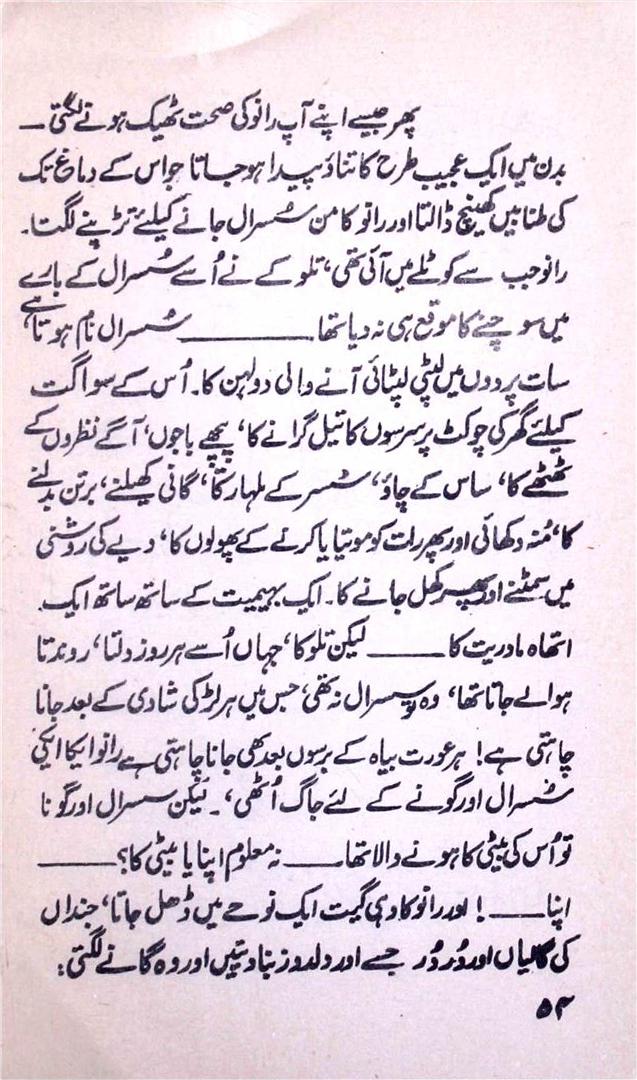 پھر جیسے اپنے آپ رانو کی صحت ٹھیک ہونے لگتی —
بدن میں ایک عجیب طرح کا تناؤ پیدا ہو جاتا جو اس کے دماغ تک
کی طنابیں کھینچ ڈالتا اور رانو کا من سُسرال جانے کیلئے تڑپنے لگتا۔
رانو جب سے کوٹلے میں آئی تھی، تلوکے نے اُسے سُسرال کے بارے
میں سوچنے کا موقع ہی نہ دیا تھا ——— سُسرال نام ہوتا ہے
سات پردوں میں لپٹی لپٹائی آنے والی دولہن کا۔ اُس کے سواگت
کیلئے گھر کی چوکٹ پر سرسوں کا تیل گرانے کا، پیچھے باجوں، آگے نظروں کے
ٹھٹھے کا، ساس کے چاؤ، سُسر کے ملہار کا، گانی کھیلنے، برتن بدلنے
کا، مُنہ دکھائی اور پھر رات کو موتیا یا کرنے کے پھولوں کا، دیے کی روشنی
میں سمٹنے اور پھر کھل جانے کا۔ ایک بہیمیت کے ساتھ ساتھ ایک
اتھاہ مادریت کا ——— لیکن تلوکا، جہاں اُسے ہر روز دلتا، روندتا
ہوا لے جاتا تھا، وہ سسرال نہ تھی، جس میں ہر لڑکی شادی کے بعد جانا
چاہتی ہے! ہر عورت بیاہ کے برسوں بعد بھی جانا چاہتی ہے رانو ایکا ایکی
سُسرال اور گونے کے لئے جاگ اُٹھی،۔ لیکن سسرال اور گونا
تو اُس کی بیٹی کا ہونے والا تھا ——— نہ معلوم اپنا یا بیٹی کا؟ ———
اپنا ——! اور رانو کا وہی گیت ایک نوحے میں ڈھل جاتا، جنداں
کی گالیاں اور دُر دُر جسے اور دلدوز بنا دیتیں اور وہ گانے لگتی:
۵۴